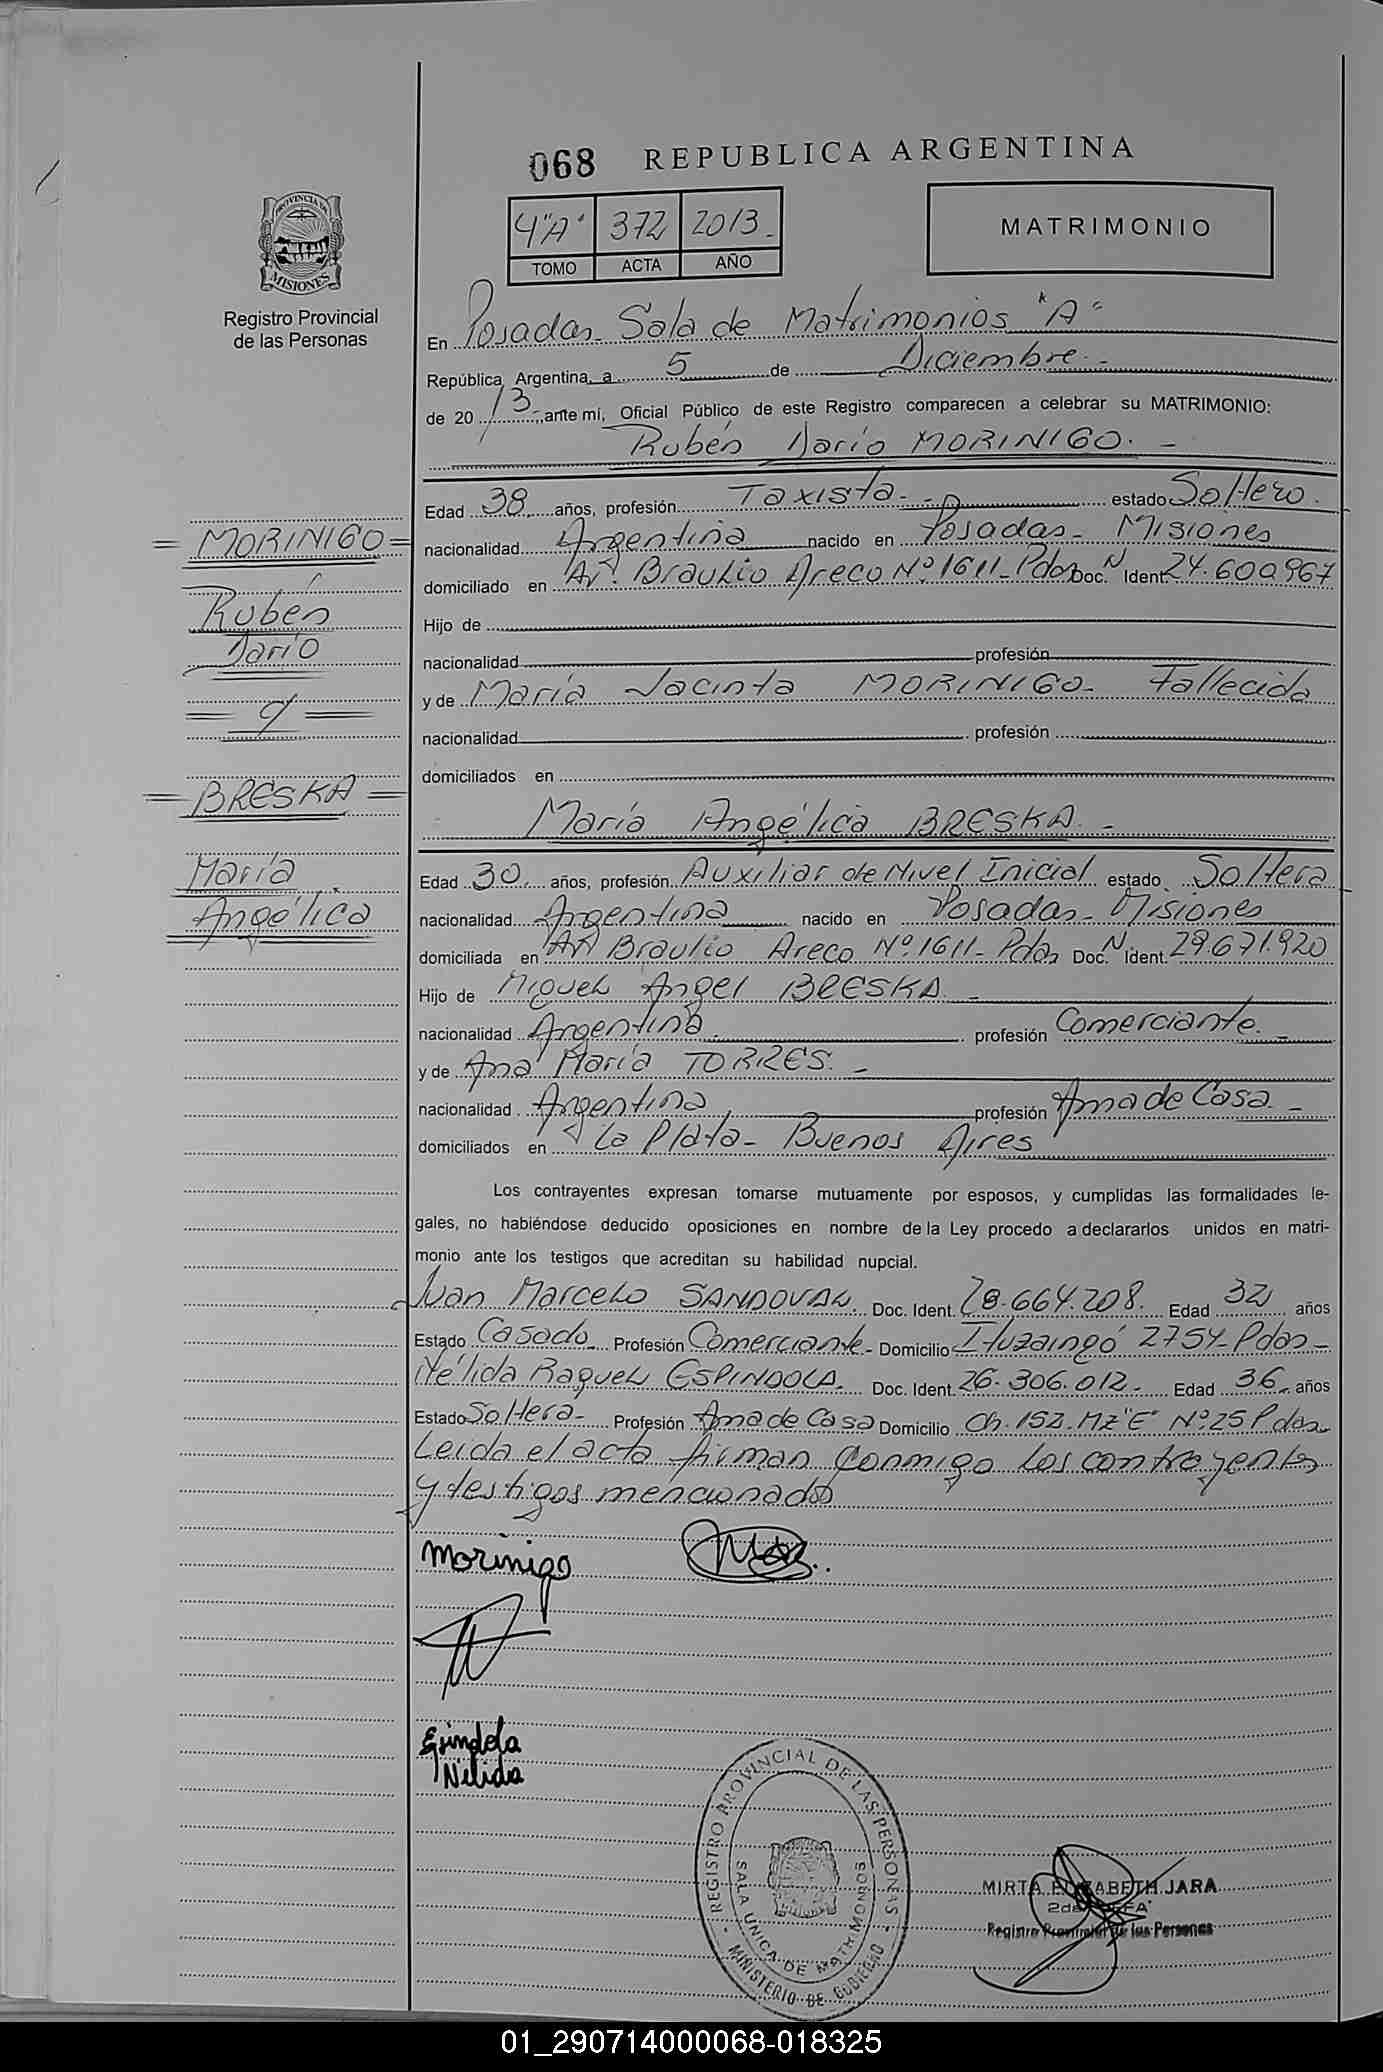 068 REPUBLICA ARGENTINA
4"A" 372 2013
TOMO ACTA AÑO
MATRIMONIO
PROVINCIA DE MISIONES
Registro Provincial
de las Personas
En Posadas Sala de Matrimonios "A"
República Argentina, a 5 de Diciembre
de 20 13 ante mi, Oficial Público de este Registro comparecen a celebrar su MATRIMONIO:
Rubén Darío MORINIGO.
Edad 38 años, profesión Taxista estado Soltero.
= MORINIGO =
nacionalidad Argentina nacido en Posadas - Misiones
domiciliado en Av. Braulio Areco Nº 1611 - Pdas Doc. N Ident. 24.600.967
Rubén
Hijo de
Darío
nacionalidad profesión
y de María Jacinta MORINIGO - Fallecida
= y =
nacionalidad profesión
domiciliados en
= BRESKA =
María Angélica BRESKA.
María
Edad 30 años, profesión Auxiliar de Nivel Inicial estado Soltera
Angélica
nacionalidad Argentina nacido en Posadas - Misiones
domiciliada en Av. Braulio Areco Nº 1611 - Pdas Doc. N Ident. 29.671.920
Hijo de Miguel Angel BRESKA.
nacionalidad Argentina profesión Comerciante.
y de Ana María TORRES.
nacionalidad Argentina profesión Ama de Casa.
domiciliados en La Plata - Buenos Aires
Los contrayentes expresan tomarse mutuamente por esposos, y cumplidas las formalidades le-
gales, no habiéndose deducido oposiciones en nombre de la Ley procedo a declararlos unidos en matri-
monio ante los testigos que acreditan su habilidad nupcial.
Juan Marcelo SANDOVAL. Doc. Ident. 28.664.208. Edad 32 años
Estado Casado Profesión Comerciante - Domicilio Ituzaingó 2754 - Pdas -
Nélida Raquel ESPINDOLA. Doc. Ident. 26.306.012. Edad 36 años
Estado Soltera - Profesión Ama de Casa Domicilio Ch. 152. Mz "E" Nº 25 Pdas.
Leida el acta firman conmigo los contrayentes
y testigos mencionados
Morinigo
Espindola
Nélida
REGISTRO PROVINCIAL DE LAS PERSONAS
SALA UNICA DE MATRIMONIOS
MINISTERIO DE GOBIERNO
MIRTA ELIZABETH JARA
2da JEFA
Registro Provincial de las Personas
01_290714000068-018325